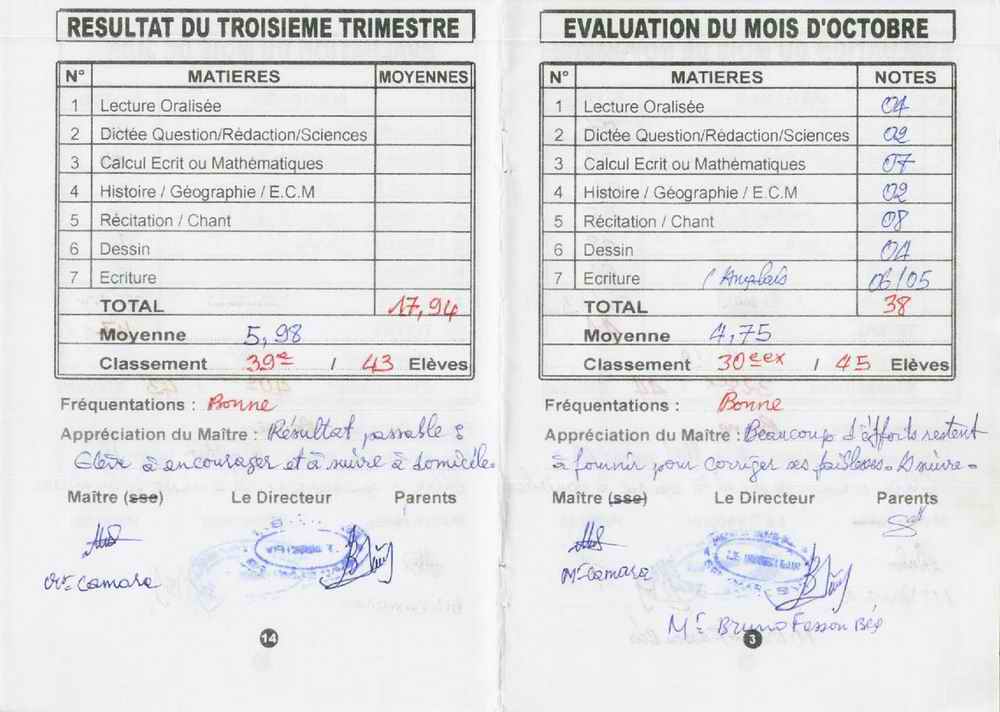 RESULTAT DU TROISIEME TRIMESTRE
N° MATIERES MOYENNES
1 Lecture Oralisée
2 Dictée Question/Rédaction/Sciences
3 Calcul Ecrit ou Mathématiques
4 Histoire / Géographie / E.C.M
5 Récitation / Chant
6 Dessin
7 Ecriture
TOTAL 17,94
Moyenne 5,98
Classement 39e / 43 Elèves
Fréquentations : Bonne
Appréciation du Maître : Résultat passable ;
Elève à encourager et à suivre à domicile.
Maître (sse) Le Directeur Parents
Mr Camara
14
EVALUATION DU MOIS D'OCTOBRE
N° MATIERES NOTES
1 Lecture Oralisée 04
2 Dictée Question/Rédaction/Sciences 02
3 Calcul Ecrit ou Mathématiques 07
4 Histoire / Géographie / E.C.M 02
5 Récitation / Chant 08
6 Dessin 04
7 Ecriture / Anglais 06/05
TOTAL 38
Moyenne 4,75
Classement 30eex / 45 Elèves
Fréquentations : Bonne
Appréciation du Maître : Beaucoup d'éfforts restent
à fournir pour corriger ses faiblesses. A suivre.
Maître (sse) Le Directeur Parents
Mr Camara
Mr Bruno Fasson
3